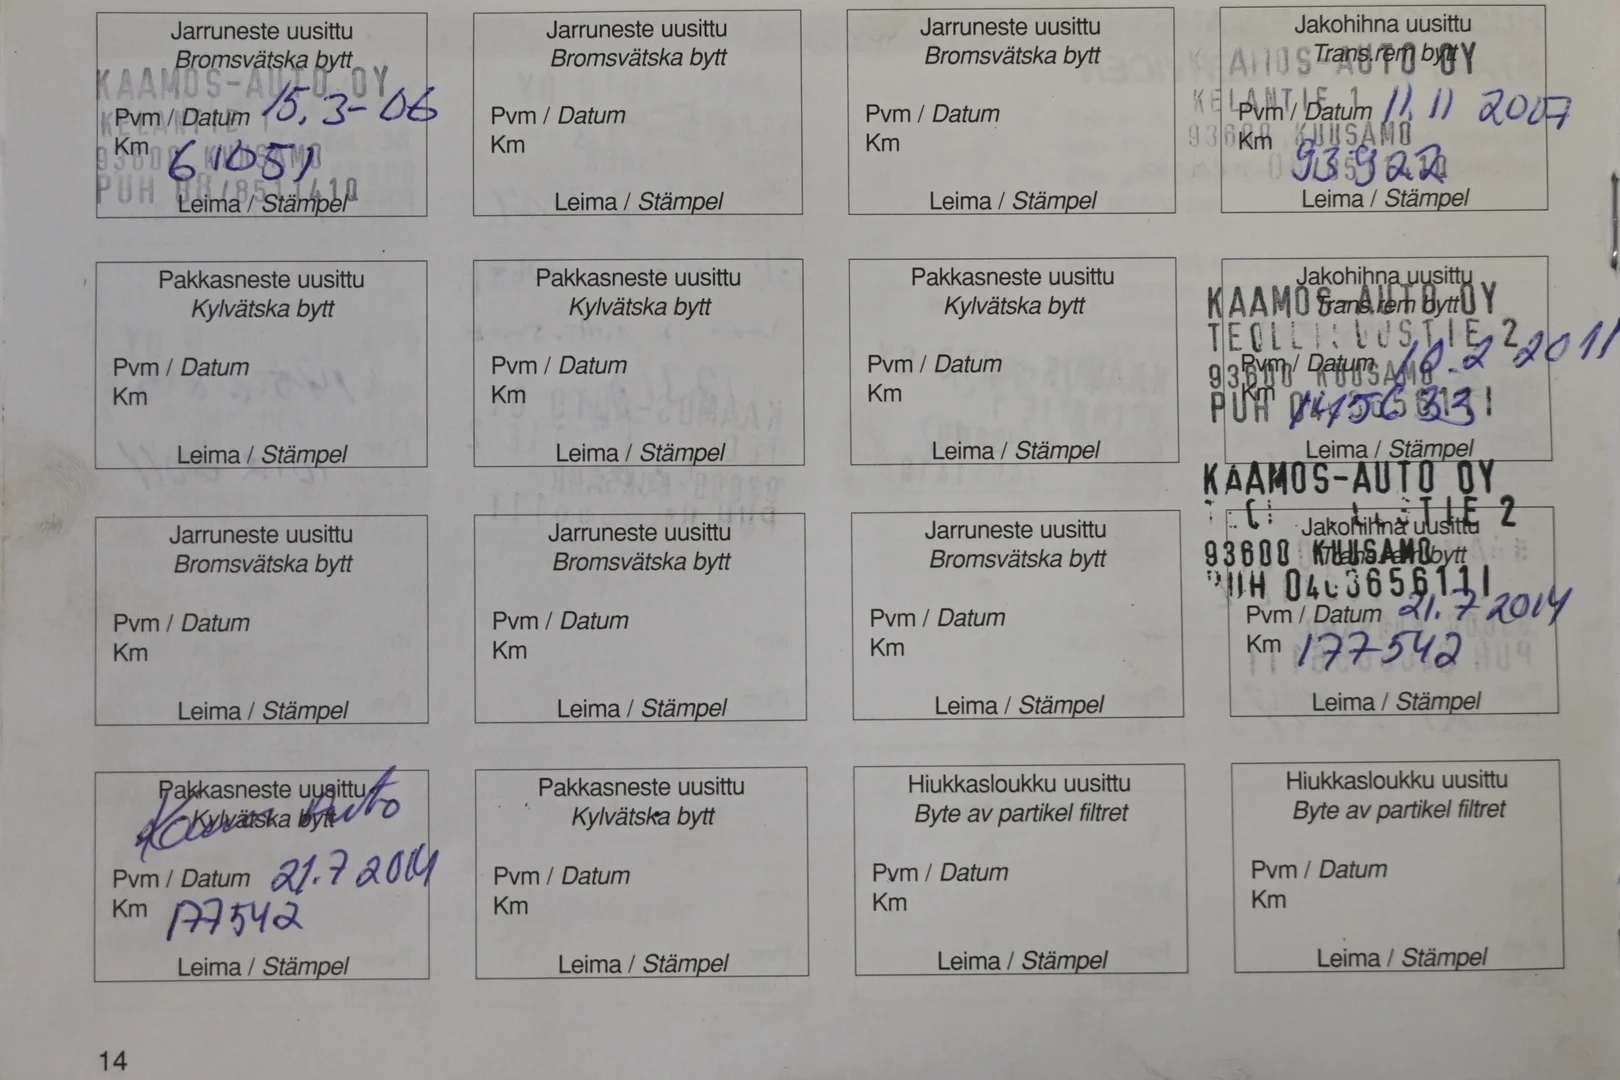 Jarruneste uusittu
Bromsvätska bytt
KAAMOS-AUTO OY
Pvm / Datum 15.3-06
KELANTIE 1
Km 61051
93600 KUUSAMO
PUH 08/8511410
Leima / Stämpel
Jarruneste uusittu
Bromsvätska bytt
Pvm / Datum
Km
Leima / Stämpel
Jarruneste uusittu
Bromsvätska bytt
Pvm / Datum
Km
Leima / Stämpel
Jakohihna uusittu
Trans.rem bytt
KAAMOS-AUTO OY
KELANTIE 1
Pvm / Datum 11.11 2007
93600 KUUSAMO
Km 93922
Leima / Stämpel
Pakkasneste uusittu
Kylvätska bytt
Pvm / Datum
Km
Leima / Stämpel
Pakkasneste uusittu
Kylvätska bytt
Pvm / Datum
Km
Leima / Stämpel
Pakkasneste uusittu
Kylvätska bytt
Pvm / Datum
Km
Leima / Stämpel
Jakohihna uusittu
Trans.rem bytt
KAAMOS-AUTO OY
TEOLLISUUSTIE 2
Pvm / Datum 10.2 2011
93600 KUUSAMO
Km 145633
PUH
Leima / Stämpel
Jarruneste uusittu
Bromsvätska bytt
Pvm / Datum
Km
Leima / Stämpel
Jarruneste uusittu
Bromsvätska bytt
Pvm / Datum
Km
Leima / Stämpel
Jarruneste uusittu
Bromsvätska bytt
Pvm / Datum
Km
Leima / Stämpel
KAAMOS-AUTO OY
TIE 2
Jakohihna uusittu
93600 KUUSAMO
Trans.rem bytt
PUH 0403656111
Pvm / Datum 21.7 2014
Km 177542
Leima / Stämpel
Pakkasneste uusittu
Kylvätska bytt
Kaamos Auto
Pvm / Datum 21.7 2014
Km 177542
Leima / Stämpel
Pakkasneste uusittu
Kylvätska bytt
Pvm / Datum
Km
Leima / Stämpel
Hiukkasloukku uusittu
Byte av partikel filtret
Pvm / Datum
Km
Leima / Stämpel
Hiukkasloukku uusittu
Byte av partikel filtret
Pvm / Datum
Km
Leima / Stämpel
14